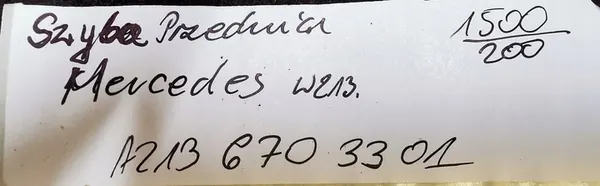 Szyba Przednia
1500
200
Mercedes W213.
A213 670 33 01